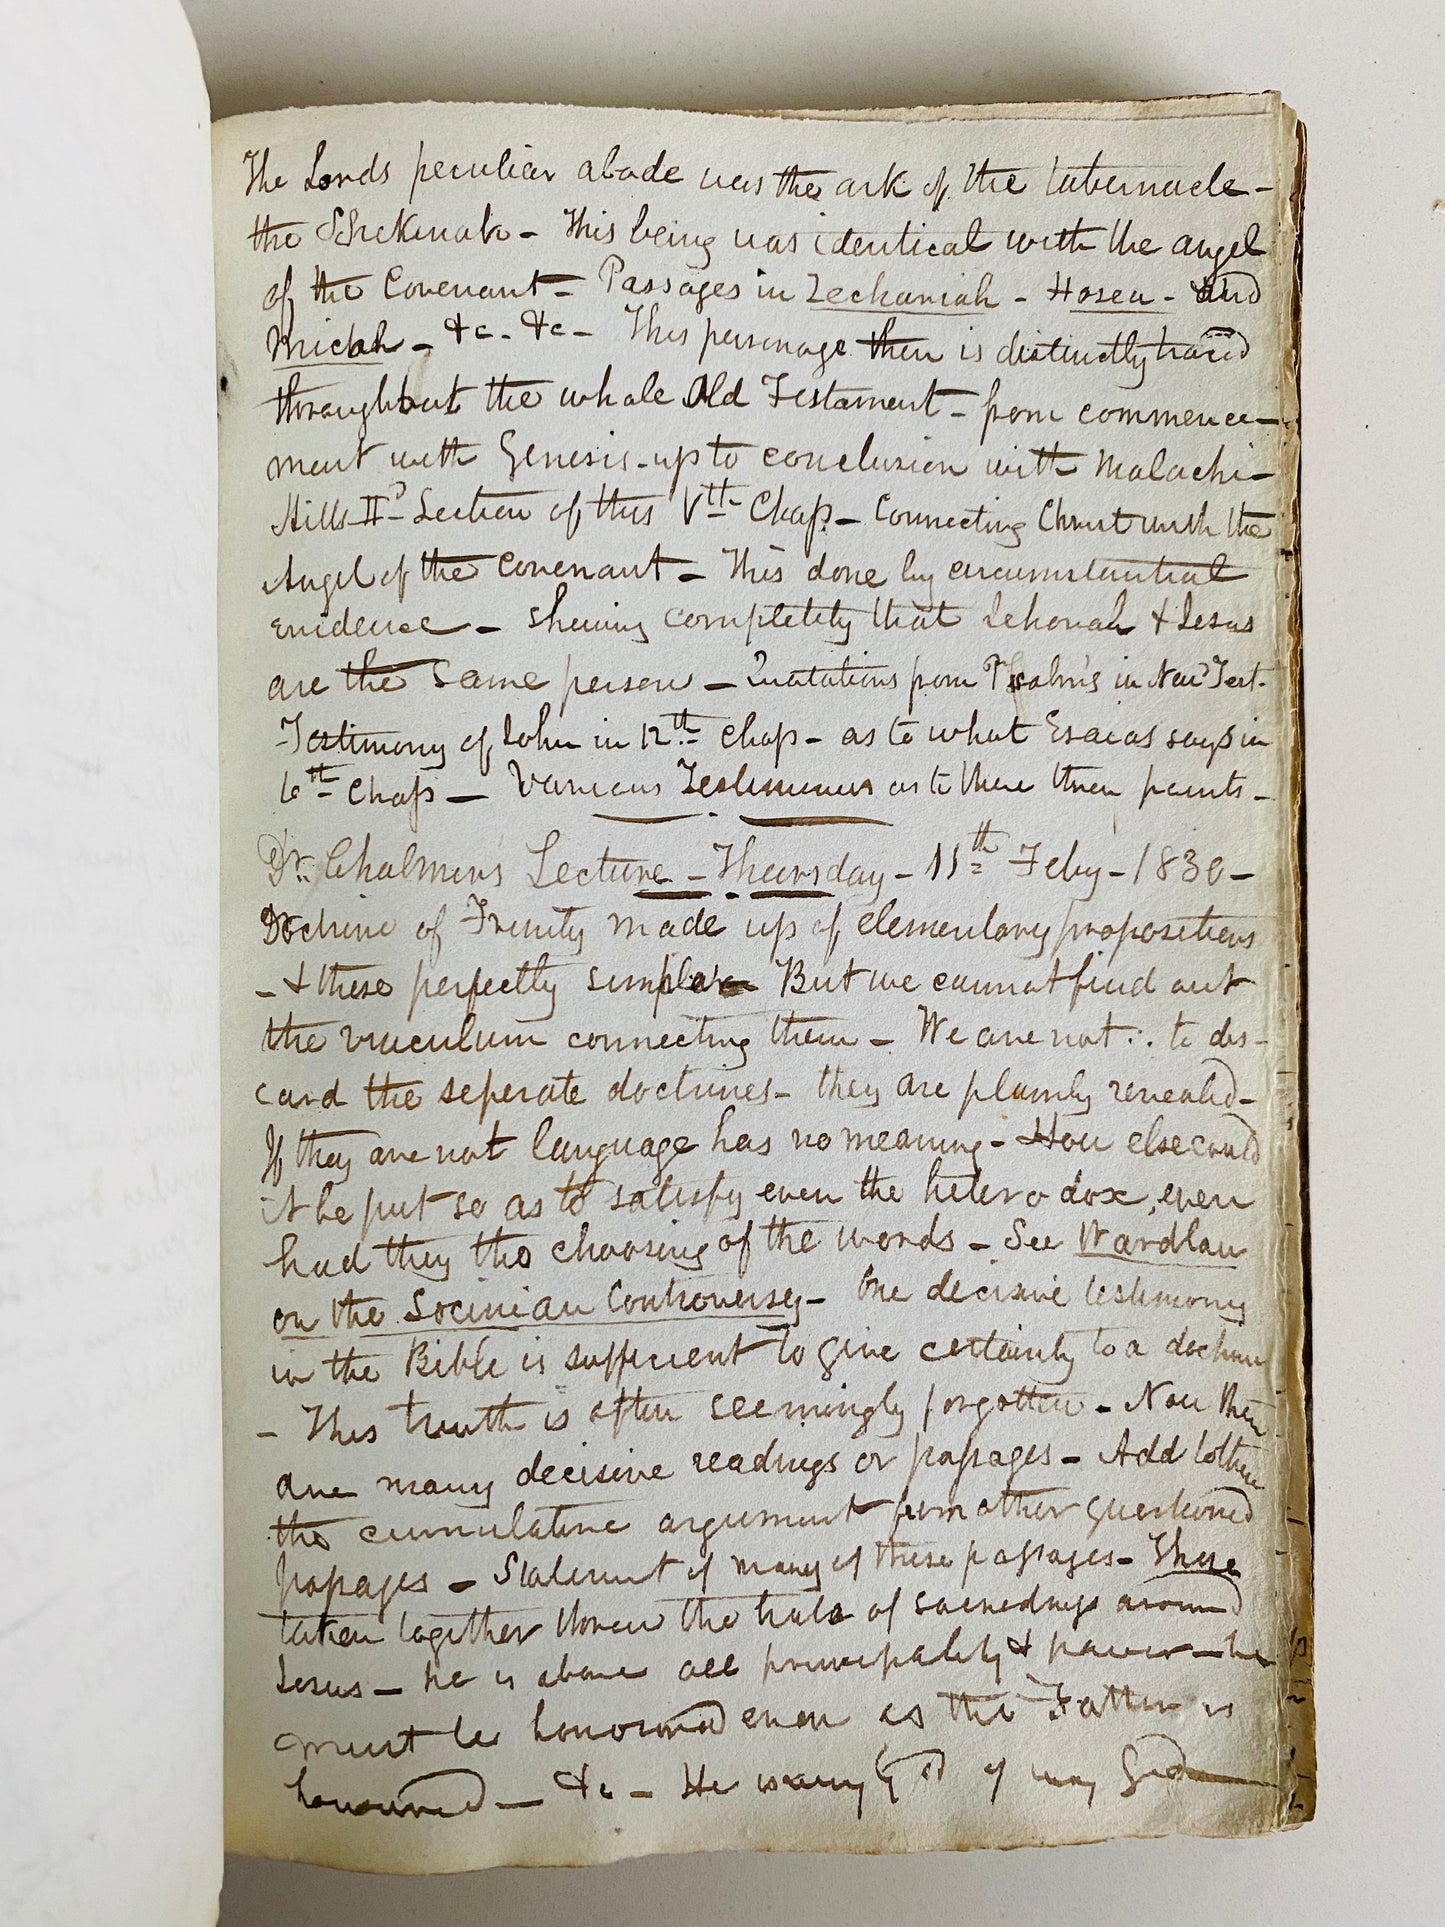 The Lords peculiar abode was the ark of the tabernacle –
the Shekinah – This being was identical with the angel
of the Covenant – Passages in Zechariah – Hosea – and
Micah – &c – &c – This personage then is distinctly traced
throughout the whole Old Testament – from commence–
ment with Genesis – up to conclusion with Malachi –
Hills IId Section of this Vth Chap – Connecting Christ with the
Angel of the Covenant – This done by circumstantial
evidence – shewing completely that Jehovah & Jesus
are the same person – Quotations from Psalms in New Test.
Testimony of John in 12th Chap – as to what Esaias says in
6th Chap – Various Testimonies as to these three points –
Dr. Chalmers's Lecture – Thursday – 11th Feby – 1830 –
Doctrine of Trinity made up of elementary propositions
– & these perfectly simple – But we cannot find out
the vinculum connecting them – We are not ∴ to dis–
card the seperate doctrines – they are plainly revealed –
If they are not language has no meaning – How else could
it be put so as to satisfy even the heterodox, even
had they the choosing of the words – See Wardlaw
on the Socinian Controversy – One decisive testimony
in the Bible is sufficient to give certainty to a doctrine
– This truth is often seemingly forgotten – Now there
are many decisive readings or passages – Add to these
the cumulative argument from other questioned
passages – Statement of many of these passages – These
taken together throw the halo of sacredness around
Jesus – he is above all principality & power – he
must be honoured even as the Father is
honoured – &c – He is very God of very God